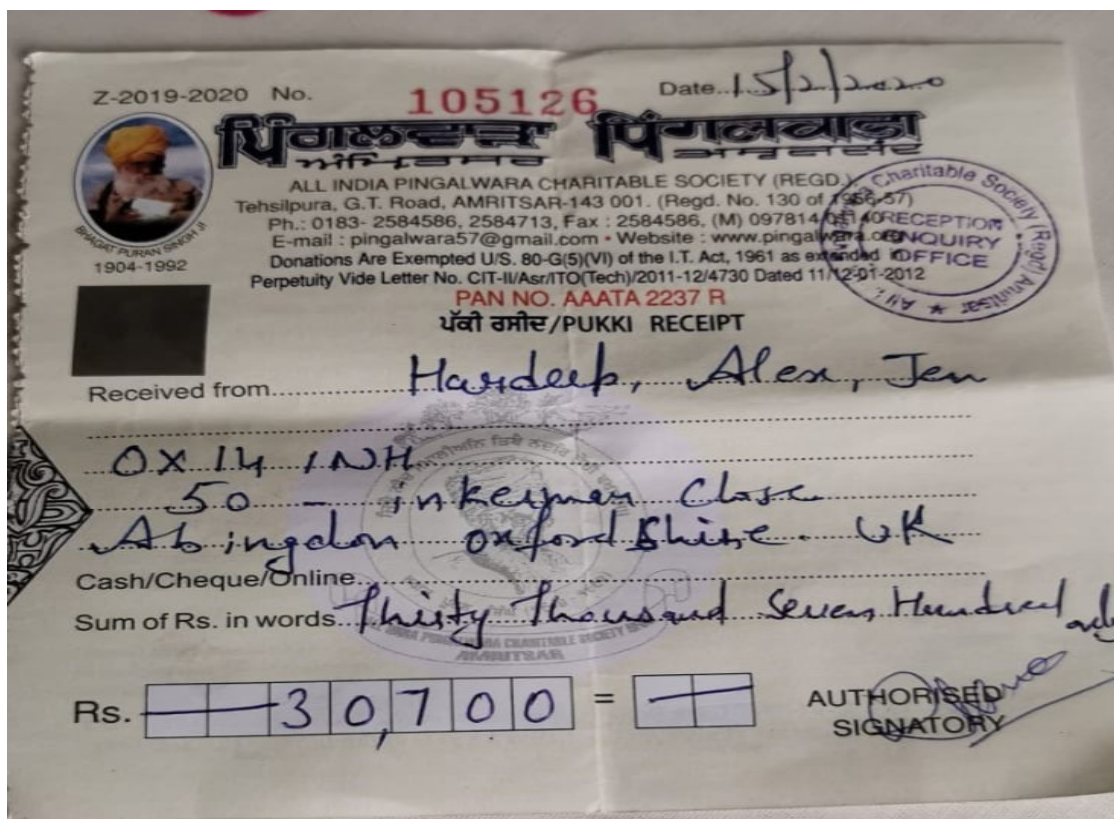 Z-2019-2020 No. 105126 Date..15/2/2020
ਪਿੰਗਲਵਾੜਾ पिंगलवाड़ा
ਅੰਮ੍ਰਿਤਸਰ अमृतसर
ALL INDIA PINGALWARA CHARITABLE SOCIETY (REGD.)
Tehsilpura, G.T. Road, AMRITSAR-143 001. (Regd. No. 130 of 1956-57)
Ph.: 0183- 2584586, 2584713, Fax : 2584586, (M) 097814
E-mail : pingalwara57@gmail.com • Website : www.pingalwara.org
Donations Are Exempted U/S. 80-G(5)(VI) of the I.T. Act, 1961 as extended in
Perpetuity Vide Letter No. CIT-II/Asr/ITO(Tech)/2011-12/4730 Dated 11/12-01-2012
BHAGAT PURAN SINGH JI
1904-1992
Charitable Society (Regd) Amritsar
RECEPTION
ENQUIRY
OFFICE
PAN NO. AAATA 2237 R
ਪੱਕੀ ਰਸੀਦ/PUKKI RECEIPT
Received from Hardeep, Alex, Jen
OX 14 1NH
50 - inkerman Close
Abingdon oxfordshire. UK
Cash/Cheque/Online
Sum of Rs. in words Thirty Thousand Seven Hundred only
PINGALWARA CHARITABLE SOCIETY
AMRITSAR
Rs. 30,700 =
AUTHORISED
SIGNATORY